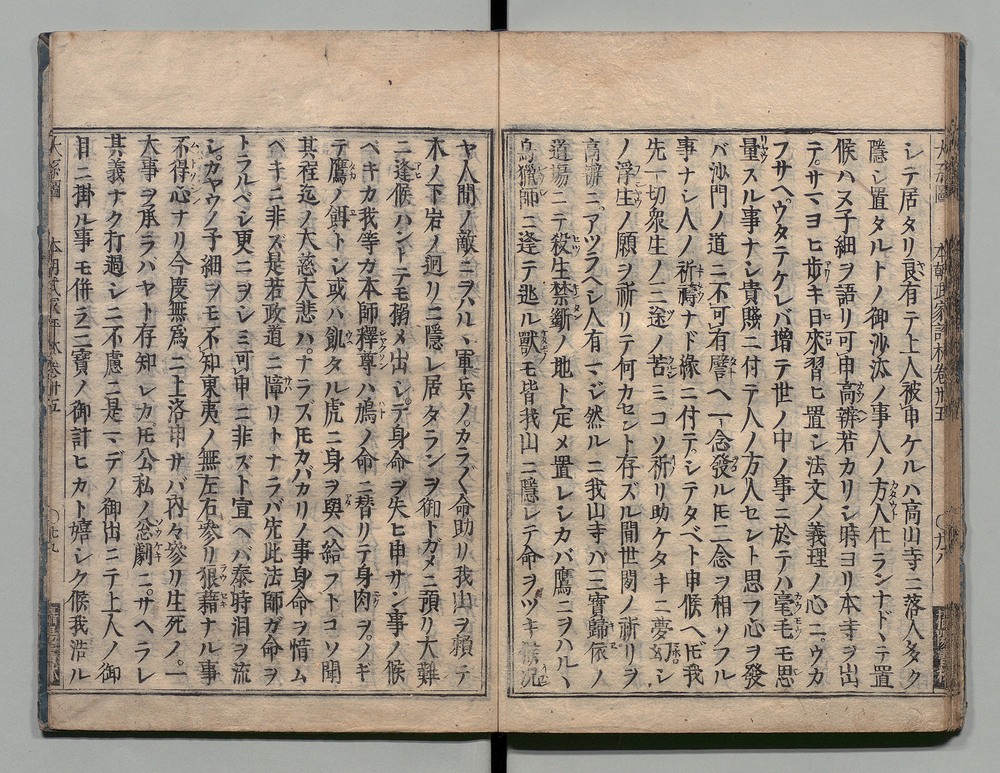 シテ居タリ良有テ上人被申ケルハ高山寺ニ落人多ク
隠シ置タルトノ御沙汰ノ事人ノ方人仕ランナドヽテ置
候ハヌ子細ヲ語リ可申高辨若カリシ時ヨリ本寺ヲ出
テサマヨヒ歩キ日來習ヒ置シ法文ノ義理ノ心ニウカ
フサヘウタテケレバ増テ世ノ中ノ事ニ於テハ毫毛モ思
量スル事ナシ貴賤ニ付テ人ノ方人セント思フ心ヲ發
バ沙門ノ道ニ不可有譬ヘ一念發ルトモ二念ヲ相ツフル
事ナシ人ノ祈禱ナド縁ニ付テシテタベト申候ヘドモ我
先一切衆生ノ三途ノ苦ニコソ祈リ助ケタキニ夢幻ノ
ノ浮生ノ願ヲ祈リテ何カセント存ズル間世間ノ祈リヲ
高辨ニアツラヘシ人有マジ然ルニ我山寺バ三寶歸依ノ
道場ニテ殺生禁斷ノ地ト定メ置レシカバ鷹ニヲハルヽ
鳥獵師ニ逢テ逃ル獸モ皆我山ニ隱レテ命ヲツキ候況
ヤ人間ノ敵ニヲハルヽ軍兵ノカラ〱命助リ我山ヲ頼テ
木ノ下岩ノ迴リニ隱レ居タランヲ御トガメニ預リ大難
ニ逢候ハントテモ搦メ出シテ身命ヲ失ヒ申サン事ノ候
ベキカ我等カ本師釋尊ハ鳩ノ命ニ替リテ身肉ヲノギ
テ鷹ノ餌トシ或ハ飢タル虎ニ身ヲ與ヘ給フトコソ聞
其程迄ノ大慈大悲ハナラズトモカバカリノ事身命ヲ惜ム
ベキニ非ズ是若政道ニ障リトナラバ先此法師ガ命ヲ
トラルベシ更ニヲシミ可申ニ非ズト宣ヘバ泰時泪ヲ流
シカヤウノ子細ヲモ不知東夷ノ無左右參リ狼藉ナル事
不得心ナリ今度無爲ニ上洛申サバ内々參リ生死ノ一
大事ヲ承ラバヤト存知シカドモ公私ノ怱劇ニサヘラレ
其義ナク行過シニ不慮ニ是マデノ御出ニテ上人ノ御
目ニ掛ル事モ併ラ三寶ノ御計ヒカト嬉シク候我浩ル